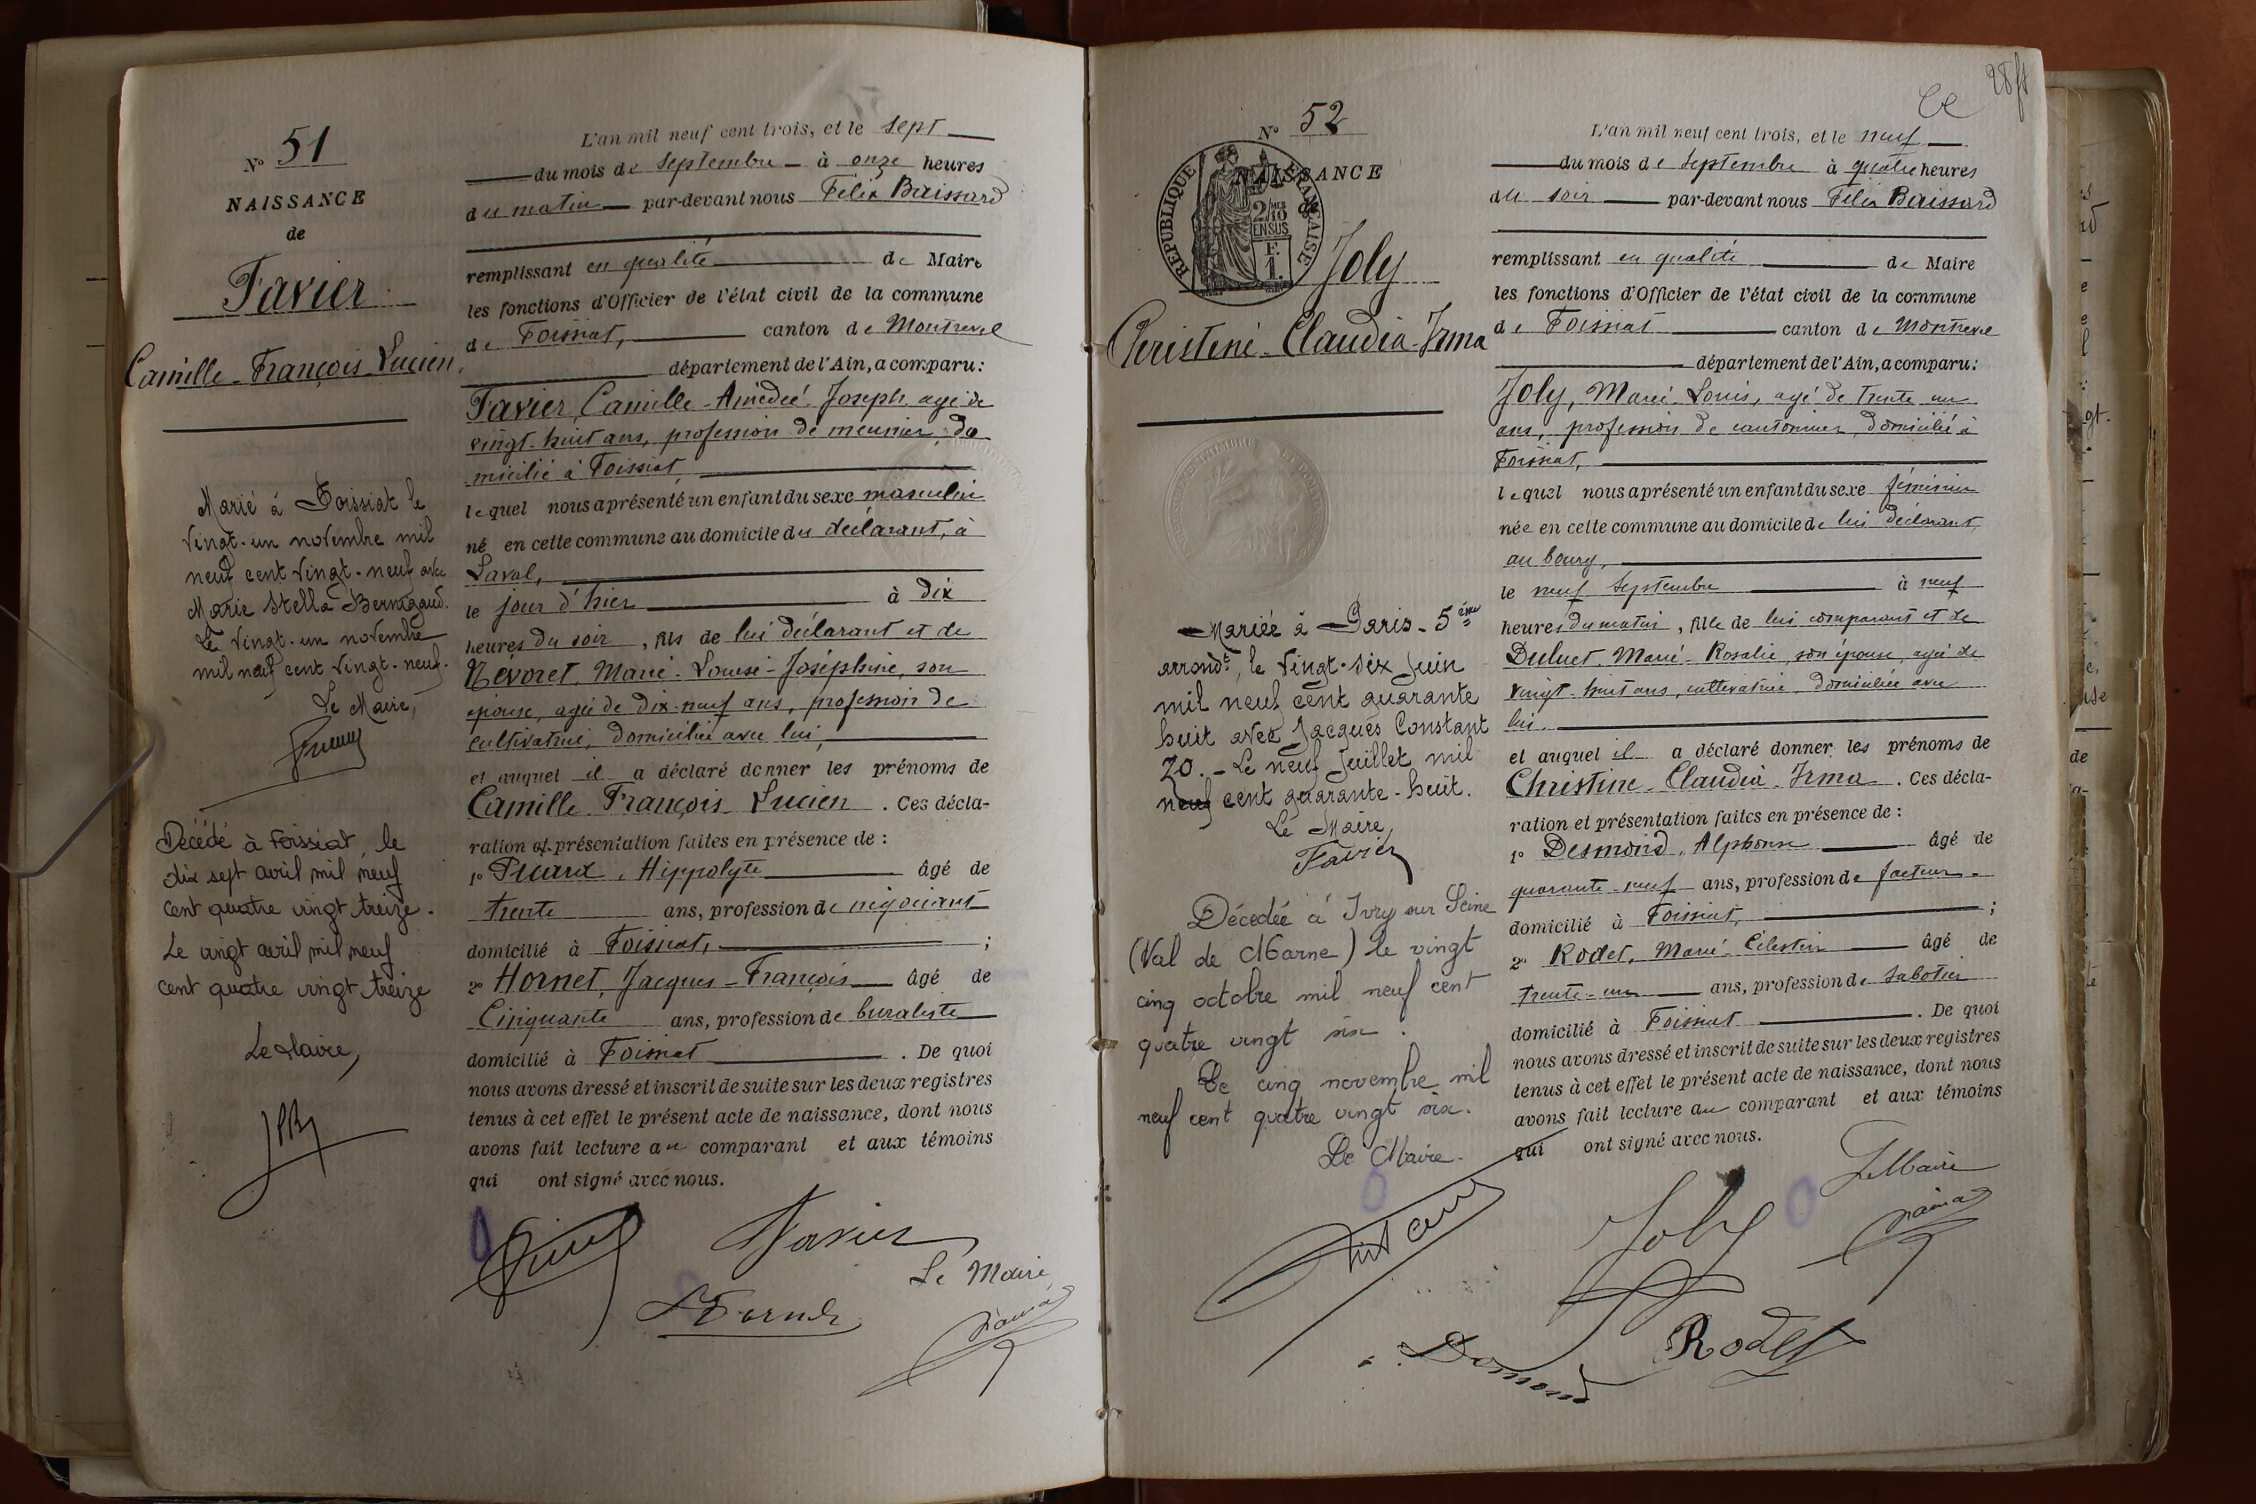 N° 51
NAISSANCE
de
Favier
Camille-François-Lucien
Marié à Foissiat le
vingt-un novembre mil
neuf cent vingt-neuf avec
Marie Stella Bernigaud.
Le vingt-un novembre
mil neuf cent vingt-neuf.
Le Maire,
Décédé à Foissiat, le
dix sept avril mil neuf
cent quatre vingt treize.
Le vingt avril mil neuf
cent quatre vingt treize
Le Maire,
L'an mil neuf cent trois, et le sept
du mois de septembre à onze heures
du matin par-devant nous Félix Baissard
remplissant en qualité de Maire
les fonctions d'Officier de l'état civil de la commune
de Foissiat, canton de Montrevel
département de l'Ain, a comparu:
Favier, Camille-Amédée-Joseph agé de
vingt-huit ans, profession de meunier, do
micilié à Foissiat,
lequel nous a présenté un enfant du sexe masculin
né en cette commune au domicile du déclarant, à
Laval,
le jour d'hier à dix
heures du soir, fils de lui déclarant et de
Névoret, Marie-Louise-Joséphine, son
épouse, agée de dix-neuf ans, profession de
cultivatrice, domiciliée avec lui,
et auquel il a déclaré donner les prénoms de
Camille-François-Lucien. Ces décla-
ration et présentation faites en présence de :
1° Picard, Hippolyte âgé de
trente ans, profession de négociant
domicilié à Foissiat, ;
2° Hornet, Jacques-François âgé de
Cinquante ans, profession de buraliste
domicilié à Foissiat. De quoi
nous avons dressé et inscrit de suite sur les deux registres
tenus à cet effet le présent acte de naissance, dont nous
avons fait lecture au comparant et aux témoins
qui ont signé avec nous.
Favier
Le Maire
28 ft
N° 52
NAISSANCE
de
REPUBLIQUE FRANÇAISE
2/10 EN SUS
F.
1.
Joly
Christine-Claudia-Irma
Mariée à Paris-5ème
arrondt, le vingt-six Juin
mil neuf cent quarante
huit avec Jacques Constant
ZO.- Le neuf Juillet mil
neuf cent quarante-huit.
Le Maire,
Favier
Décédée à Ivry sur Seine
(Val de Marne) le vingt
cinq octobre mil neuf cent
quatre vingt six.
Le cinq novembre mil
neuf cent quatre vingt six.
Le Maire.
L'an mil neuf cent trois, et le neuf
du mois de septembre à quatre heures
du soir par-devant nous Félix Baissard
remplissant en qualité de Maire
les fonctions d'Officier de l'état civil de la commune
de Foissiat canton de Montrevel
département de l'Ain, a comparu:
Joly, Marie-Louis, agé de trente un
ans, profession de cantonnier, domicilié à
Foissiat,
lequel nous a présenté un enfant du sexe féminin
née en cette commune au domicile de lui déclarant,
au bourg,
le neuf septembre à neuf
heures du matin, fille de lui comparant et de
Dulut, Marie-Rosalie, son épouse, agée de
vingt-huit ans, cultivatrice, domiciliée avec
lui.
et auquel il a déclaré donner les prénoms de
Christine-Claudia-Irma. Ces décla-
ration et présentation faites en présence de :
1° Desmond, Alphonse âgé de
quarante-neuf ans, profession de facteur
domicilié à Foissiat, ;
2° Rodet, Marie-Célestin âgé de
trente-un ans, profession de sabotier
domicilié à Foissiat. De quoi
nous avons dressé et inscrit de suite sur les deux registres
tenus à cet effet le présent acte de naissance, dont nous
avons fait lecture au comparant et aux témoins
qui ont signé avec nous.
Le Maire
Joly
Rodet